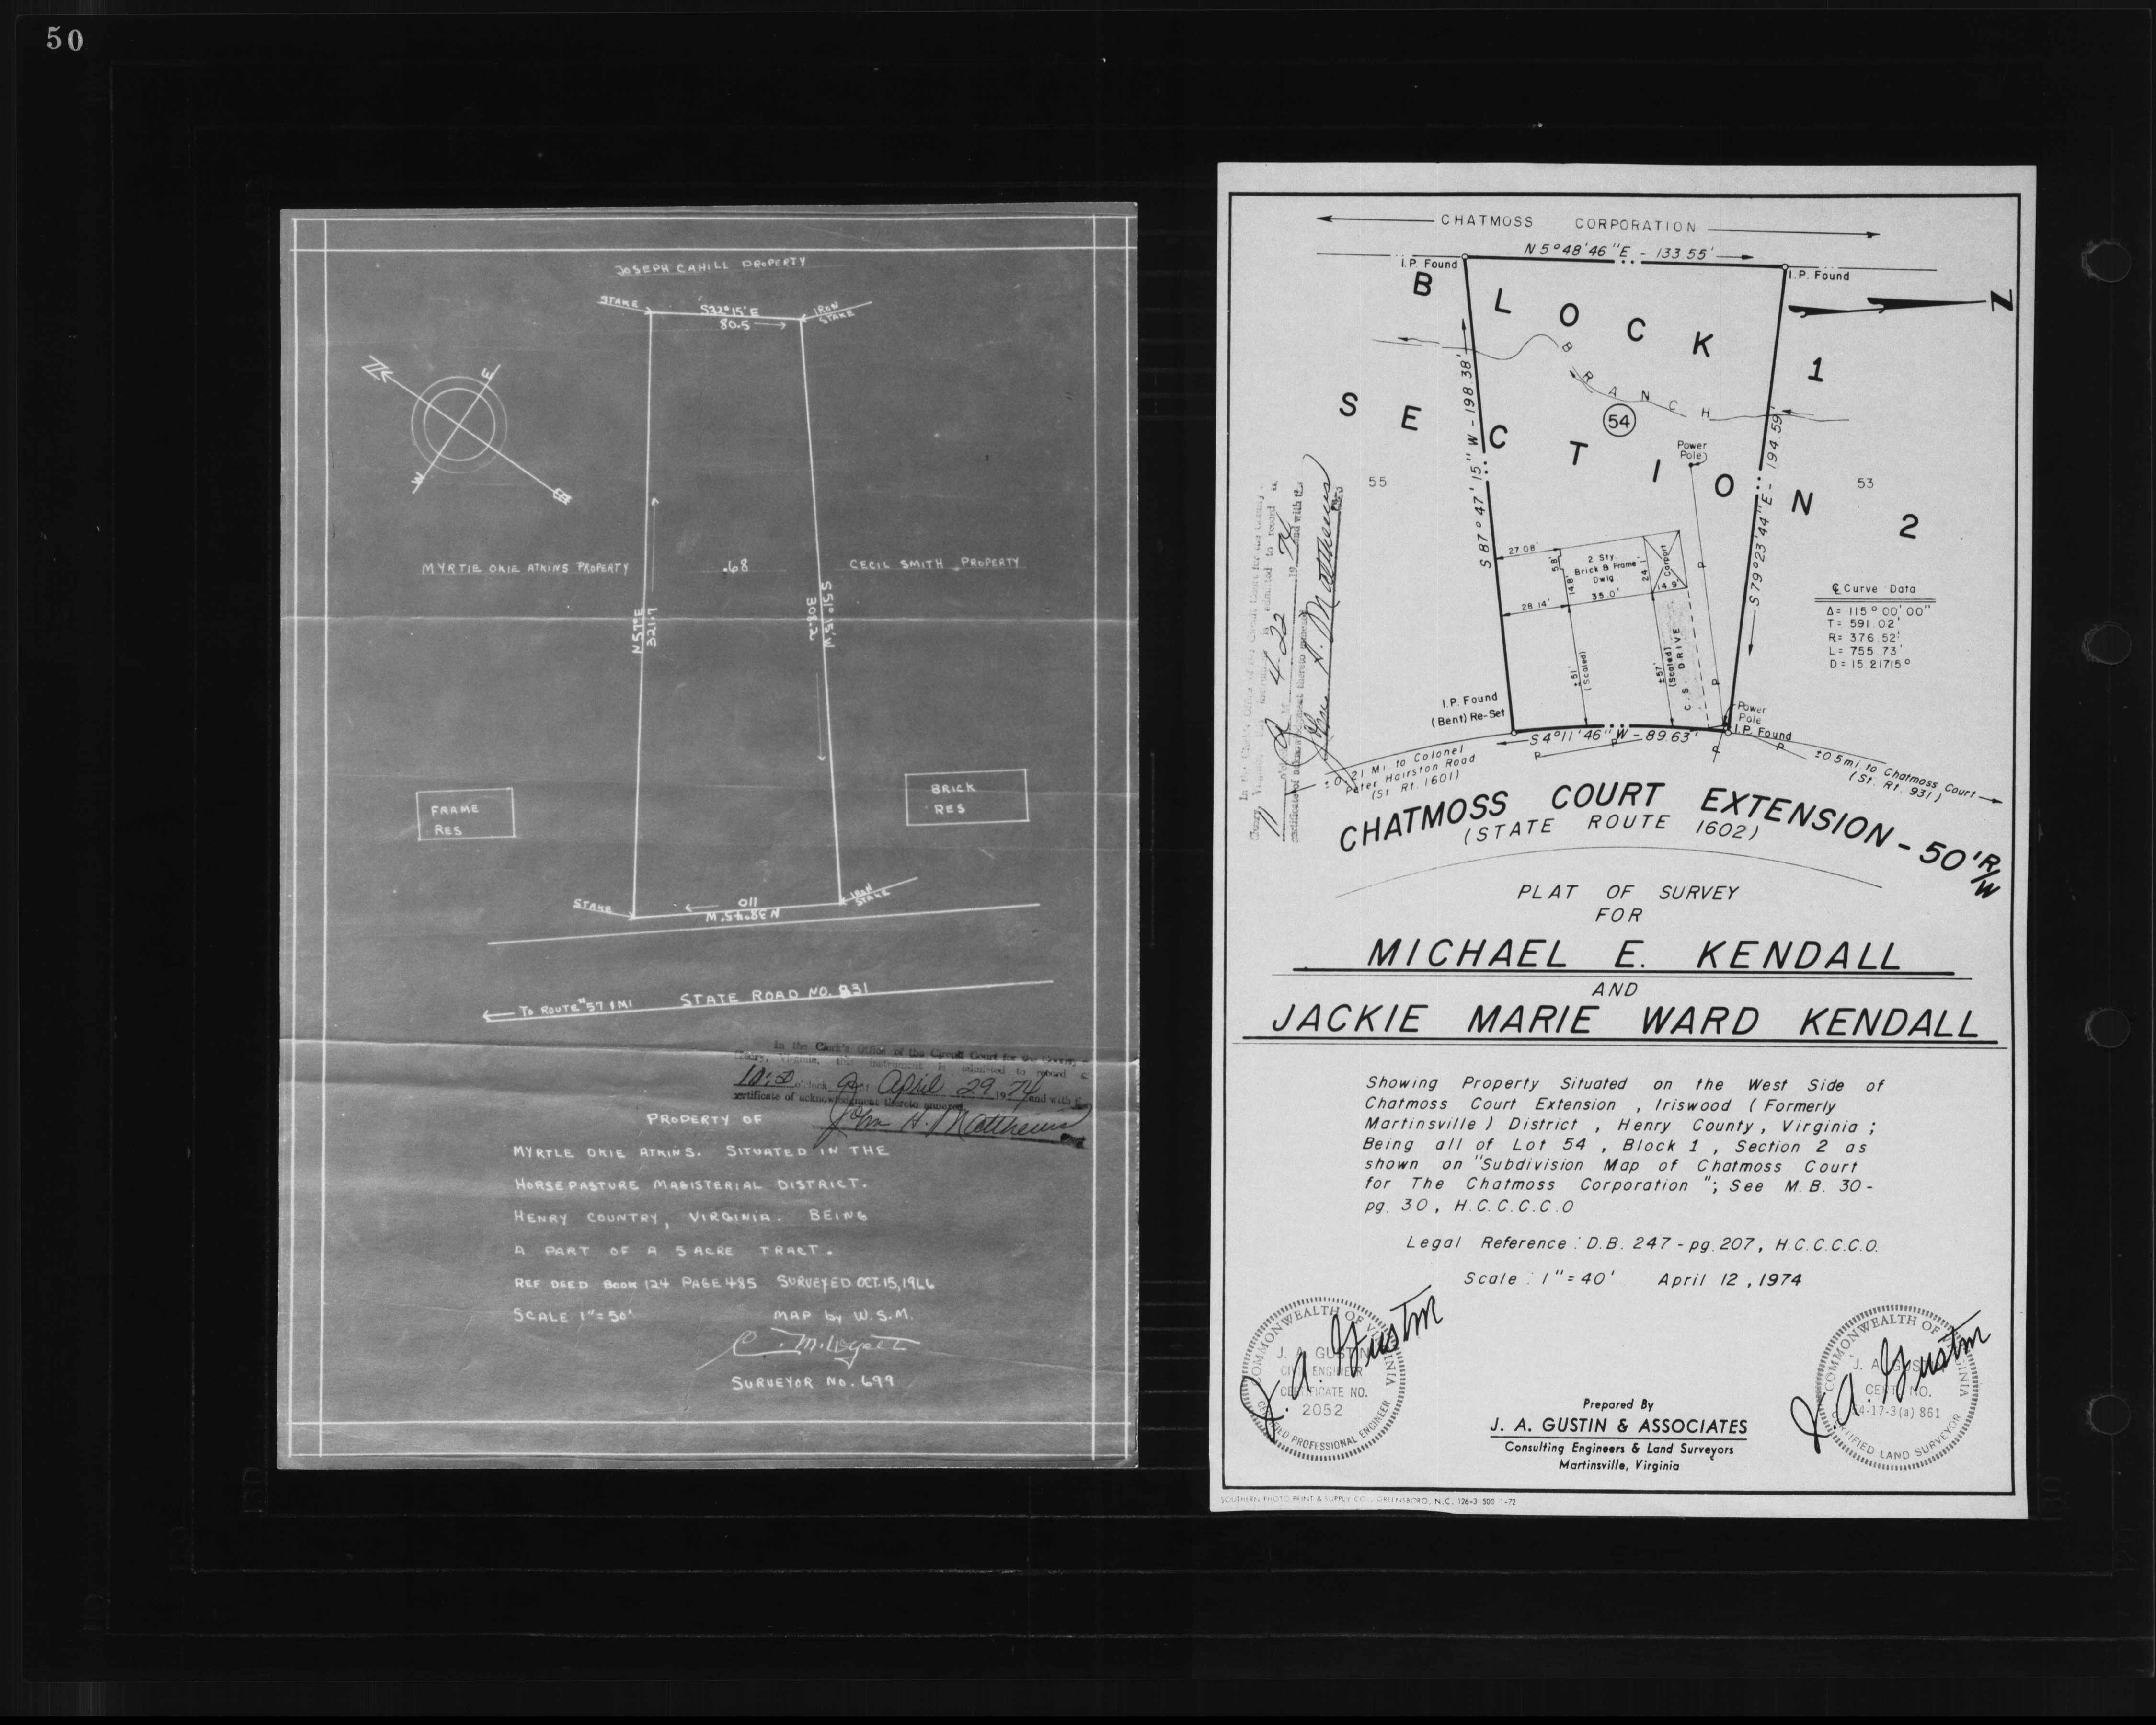 50
JOSEPH CAHILL PROPERTY
STAKE
S32°15'E
80.5
IRON
STAKE
E
W
MYRTIE OKIE ATKINS PROPERTY
.68
CECIL SMITH PROPERTY
N 57°E
321.7
S 51°15'W
308.2
FRAME
RES
BRICK
RES
STAKE
110
N 38°45'W
IRON
STAKE
TO ROUTE #57 1 MI
STATE ROAD NO. 831
In the Clerk's Office of the Circuit Court for the County
Henry, Virginia, this instrument is admitted to record
10:50 o'clock April 29 1974 and with
certificate of acknowledgment thereto annexed
John H. Matthews
PROPERTY OF
MYRTLE OKIE ATKINS. SITUATED IN THE
HORSEPASTURE MAGISTERIAL DISTRICT.
HENRY COUNTRY, VIRGINIA. BEING
A PART OF A 5 ACRE TRACT.
REF DEED BOOK 124 PAGE 485 SURVEYED OCT. 15, 1966
SCALE 1"=50'
MAP by W.S.M.
SURVEYOR NO. 699
CHATMOSS CORPORATION
N 5°48'46"E - 133.55'
I.P. Found
I.P. Found
N
BLOCK 1
BRANCH
54
SECTION 2
Power
Pole
55
53
S 87°47'15"W - 198.38'
S 79°23'44"E - 194.59'
27.08'
5.8'
14.8'
2 Sty.
Brick & Frame
Dwlg.
24.1'
Carport
14.9'
28.14'
35.0'
±51'
(Scaled)
±57'
(Scaled)
C.S. DRIVE
P
P
℄ Curve Data
Δ= 115°00'00"
T= 591.02'
R= 376.52'
L= 755.73'
D= 15.21715°
I.P. Found
(Bent) Re-Set
Power
Pole
I.P. Found
S 4°11'46"W - 89.63'
P
P
±0.21 Mi. to Colonel
Peter Hairston Road
(St. Rt. 1601)
±0.5mi. to Chatmoss Court
(St. Rt. 931)
CHATMOSS COURT EXTENSION - 50' R/W
(STATE ROUTE 1602)
4-22
John H. Matthews
PLAT OF SURVEY
FOR
MICHAEL E. KENDALL
AND
JACKIE MARIE WARD KENDALL
Showing Property Situated on the West Side of
Chatmoss Court Extension , Iriswood ( Formerly
Martinsville ) District , Henry County , Virginia ;
Being all of Lot 54 , Block 1 , Section 2 as
shown on "Subdivision Map of Chatmoss Court
for The Chatmoss Corporation "; See M.B. 30-
pg. 30, H.C.C.C.C.O
Legal Reference : D.B. 247 - pg. 207, H.C.C.C.C.O.
Scale : 1"=40' April 12 , 1974
COMMONWEALTH OF VIRGINIA
J. A. GUSTIN
CIVIL ENGINEER
CERTIFICATE NO.
2052
CERTIFIED PROFESSIONAL ENGINEER
J. A. Gustin
COMMONWEALTH OF VIRGINIA
J. A. GUSTIN
CERT. NO.
54-17-3(a) 861
CERTIFIED LAND SURVEYOR
J. A. Gustin
Prepared By
J. A. GUSTIN & ASSOCIATES
Consulting Engineers & Land Surveyors
Martinsville, Virginia
SOUTHERN PHOTO PRINT & SUPPLY CO., GREENSBORO, N.C. 126-3 500 1-72